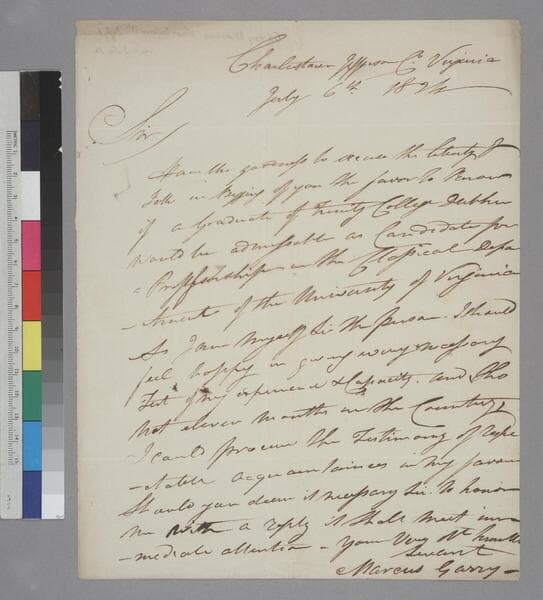 Charlestown Jefferson Co. Virginia
July 6th. 1824
Sir
Have the goodness to excuse the liberty I
take in Begging of you the favor to Know
if a Graduate of Trinity College Dublin
would be admissable as Candidate for
a Professorship in the Classical Depa
-rtment of the University of Virginia
As I am myself Sir the person. I should
feel happy in giving every necessary
Test of my experience & Capacity. and tho
not eleven months in the Country,
I could procure the Testimony of respe
-ctable acquaintainces in my favour
Should you deem it necessary Sir. to honor
me with a reply it shall meet im
-mediate attention - your Very Obt. humble
Servant
Marcus Garry -